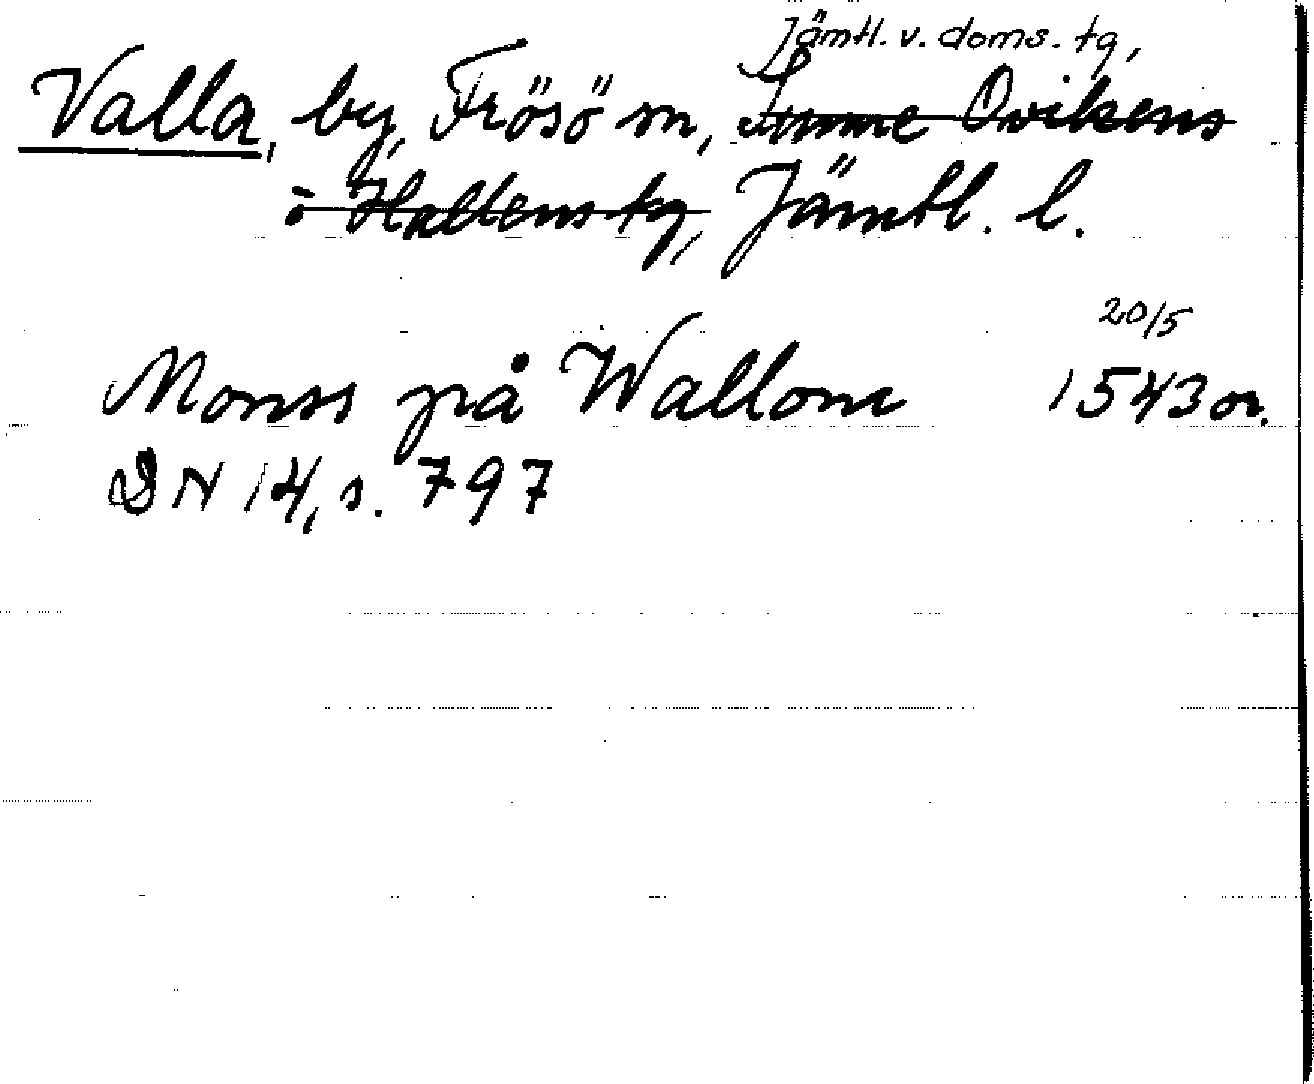 Jämtl. v. doms. tg,
Valla, by, Frösö sn, Sunne Ovikens
o Hallens tg, Jämtl. l.
20/5
Monss på Wallom 1543 or.
DN 14, s. 797